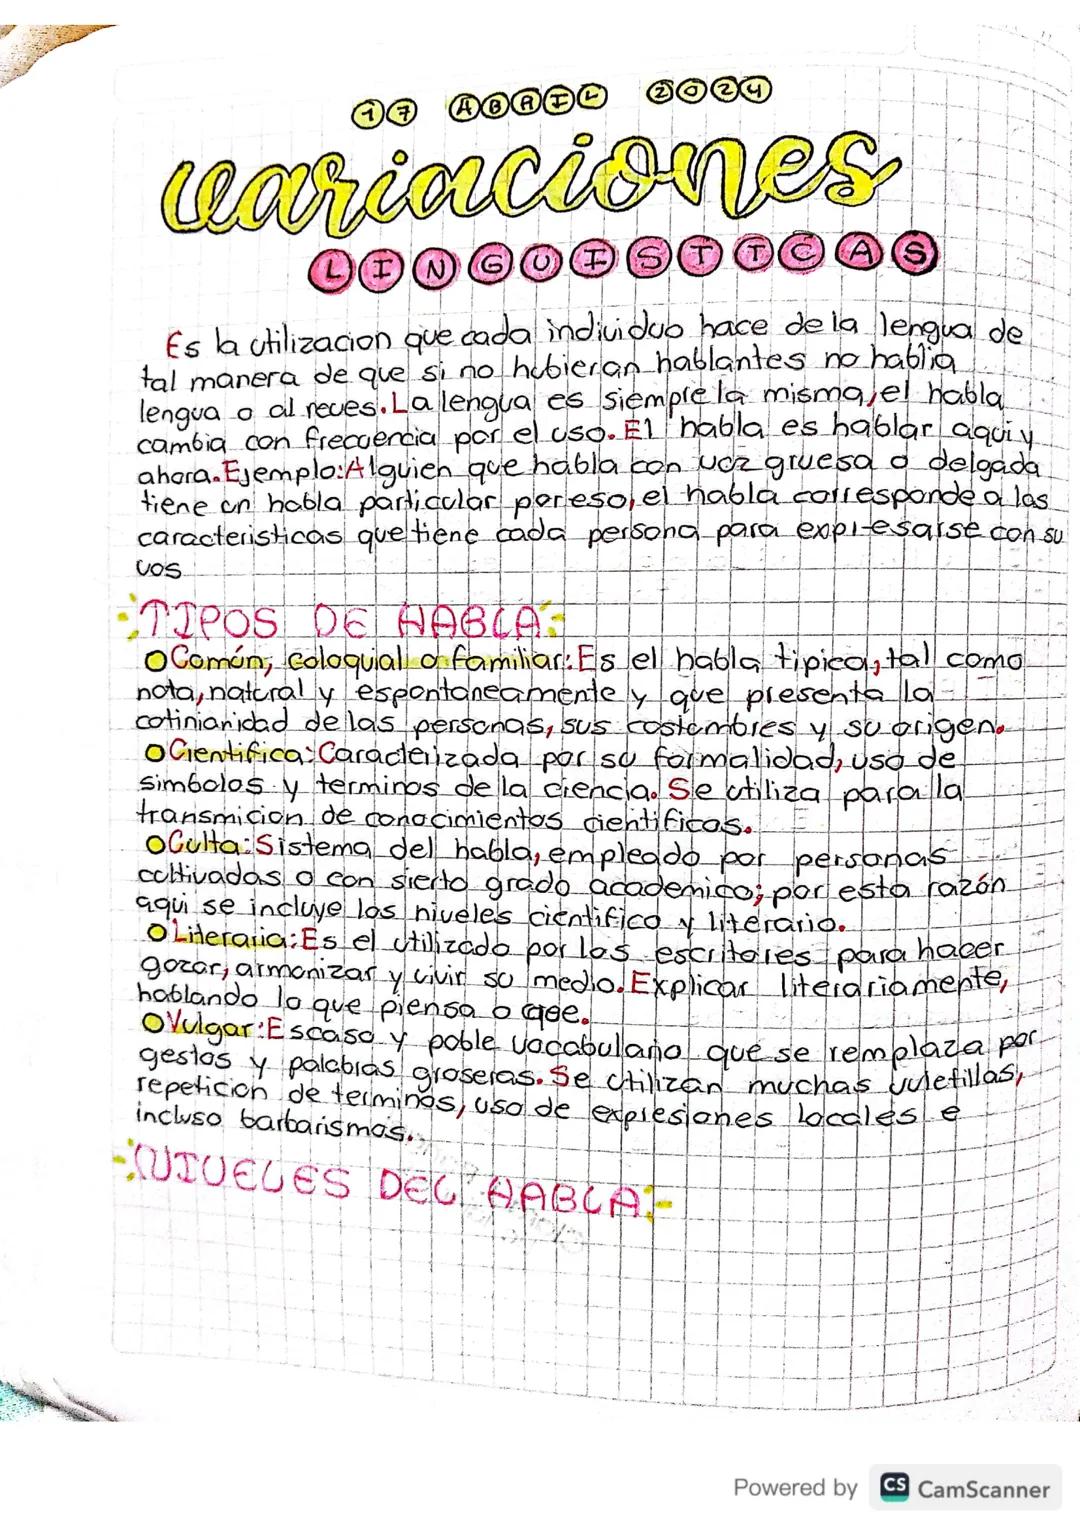 17 ABRIL 2024
variaciones
LINGUISTICAS
Es la utilizacion que cada individuo hace de la lengua de
tal manera de que si no hubieran hablantes no hablia
lengua o al reves. La lengua es siempre la misma, el habla
cambia con frecuencia por el uso. El habla es hablar aqui y
ahora. Ejemplo: Alguien que habla con voz gruesa o delgada
tiene un habla particular por eso, el habla corresponde a las
caracteristicas que tiene cada persona para expresarse con su
vos
TIPOS DE HABLA:
Común, coloquial o familiar: Es el habla tipica, tal como
nota, natural y espontaneamente y que presenta la
cotinianidad de las personas, sus costumbres y su origen.
Cientifica: Caracterizada por su formalidad, uso de
simbolos y terminos de la ciencia. Se utiliza para la
transmicion de conocimientos cientificos.
Culta: Sistema del habla, empleado por personas
cultivadas o con sierto grado academico; por esta razón
aqui se incluye los niveles cientifico y literario.
Literaria: Es el utilizado por los escritores para hacer
gozar, armonizar y vivir su medio. Explicar literariamente,
hablando lo que piensa o cree.
Vulgar: Escaso y poble vocabulario que se remplaza por
gestos y palabras groseras. Se utilizan muchas vuletillas,
repeticion de terminos, uso de expresiones locales e
incluso barbarismos.
NIVELES DEL HABLA:
Powered by CS CamScanner